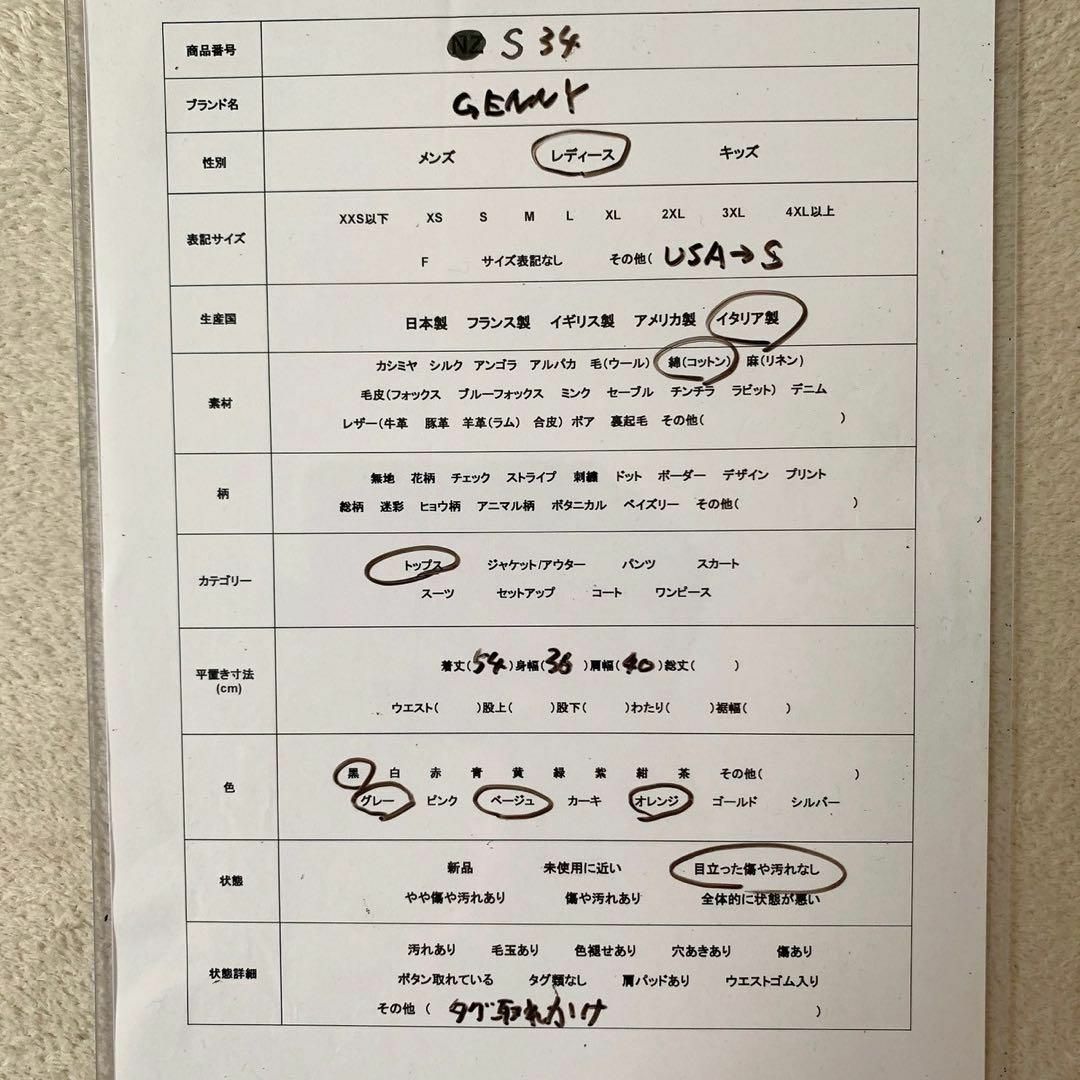 商品番号 NZ S 34
ブランド名 GENNY
性別 メンズ レディース キッズ
XXS以下 XS S M L XL 2XL 3XL 4XL以上
表記サイズ
F サイズ表記なし その他( USA→S
生産国 日本製 フランス製 イギリス製 アメリカ製 イタリア製
カシミヤ シルク アンゴラ アルパカ 毛(ウール) 綿(コットン) 麻(リネン)
毛皮(フォックス ブルーフォックス ミンク セーブル チンチラ ラビット) デニム
素材
レザー(牛革 豚革 羊革(ラム) 合皮) ボア 裏起毛 その他( )
無地 花柄 チェック ストライプ 刺繍 ドット ボーダー デザイン プリント
柄
総柄 迷彩 ヒョウ柄 アニマル柄 ボタニカル ペイズリー その他( )
トップス ジャケット/アウター パンツ スカート
カテゴリー
スーツ セットアップ コート ワンピース
着丈(54)身幅(36)肩幅(40)総丈( )
平置き寸法
(cm)
ウエスト( )股上( )股下( )わたり( )裾幅( )
黒 白 赤 青 黄 緑 紫 紺 茶 その他( )
色
グレー ピンク ベージュ カーキ オレンジ ゴールド シルバー
新品 未使用に近い 目立った傷や汚れなし
状態
やや傷や汚れあり 傷や汚れあり 全体的に状態が悪い
汚れあり 毛玉あり 色褪せあり 穴あきあり 傷あり
状態詳細 ボタン取れている タグ類なし 肩パッドあり ウエストゴム入り
その他 ( タグ取れかけ )